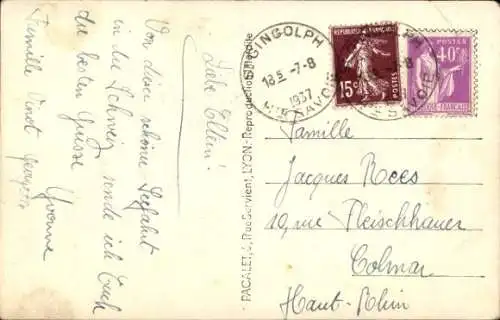 Liebe Ellen!
Von einer schöne Seefahrt
in der Schweiz sende ich Euch
die besten Grüsse
Yvonne
Famille
PACALET, 5, Rue Servient, LYON - Reproduction interdite
ST GINGOLPH
18 5 -7-8
1937
HTE SAVOIE
15c
REPUBLIQUE FRANÇAISE
POSTES
40c
Famille
Jacques Rees
10, rue Fleischhauer
Colmar
Haut-Rhin